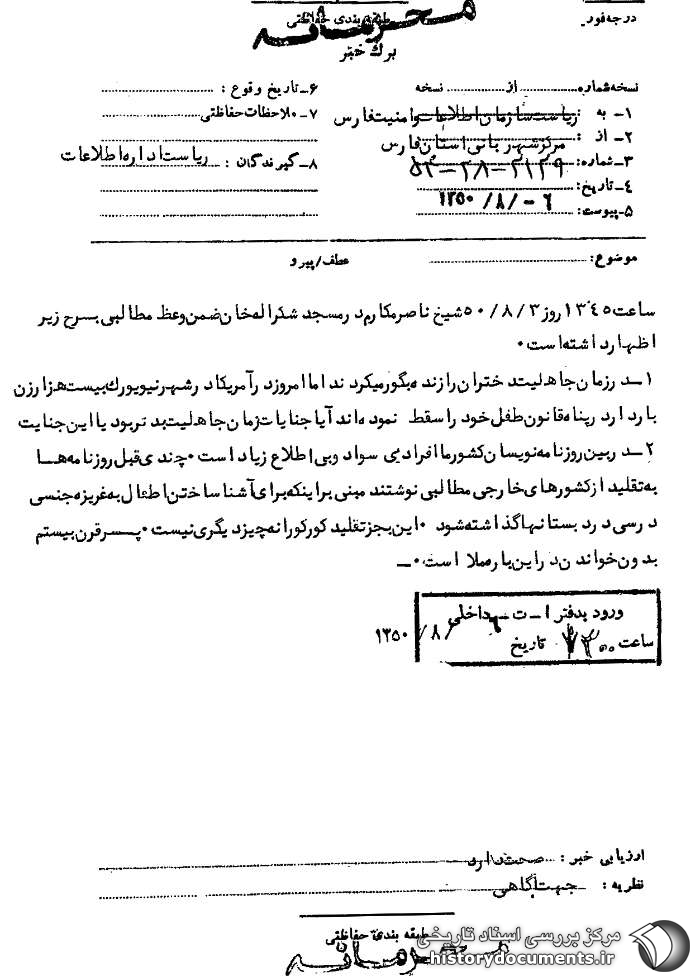 درجه فور
طبقه بندی حفاظتی
محرمانه
برگ خبر
نسخه شماره ........ از ........ نسخه
۱ـ به : ریاست سازمان اطلاعات وامنیت فارس
۲ـ از : مرکز شهربانی استان فارس
۳ـ شماره: ۲۱۲۹-۳۸-۵۳
۴ـ تاریخ: ۶-/۸/۱۳۵۰
۵ـ پیوست:
۶ـ تاریخ وقوع :
۷ـ ملاحظات حفاظتی
۸ـ گیرندگان : ریاست اداره اطلاعات
موضوع: عطف/پیرو
ساعت ۱۳۴۵ روز ۵۰/۸/۳ شیخ ناصر مکارم در مسجد شکراله خان ضمن وعظ مطالبی بسرح زیر
اظهار داشته است ۰
۱ـ در زمان جاهلیت دختران را زنده بگور میکردند اما امروز در آمریکا در شهر نیویورک بیست هزار زن
باردار در پناه قانون طفل خود را سقط نموده اند آیا جنایات زمان جاهلیت بدتر بود یا این جنایت
۲ـ در بین روزنامه نویسان کشور ما افراد بی سواد وبی اطلاع زیاد است ۰ چندی قبل روزنامه هـا
به تقلید از کشورهای خارجی مطالبی نوشتند مبنی براینکه برای آشنا ساختن اطفال به غریزه جنسی
درسی در دبستانها گذاشته شود ۰ این بجز تقلید کورکورانه چیز دیگری نیست ۰ پسر قرن بیستم
بدون خواندن در این باره ملا است ۰ـ
ورود بدفتر ا ـ ت ـ داخلی
ساعت تاریخ ۶/۸/۱۳۵۰
ارزیابی خبر : صحت دارد
نظریه : جهت آگاهی
طبقه بندی حفاظتی
محرمانه
مرکز بررسی اسناد تاریخی
historydocuments.ir